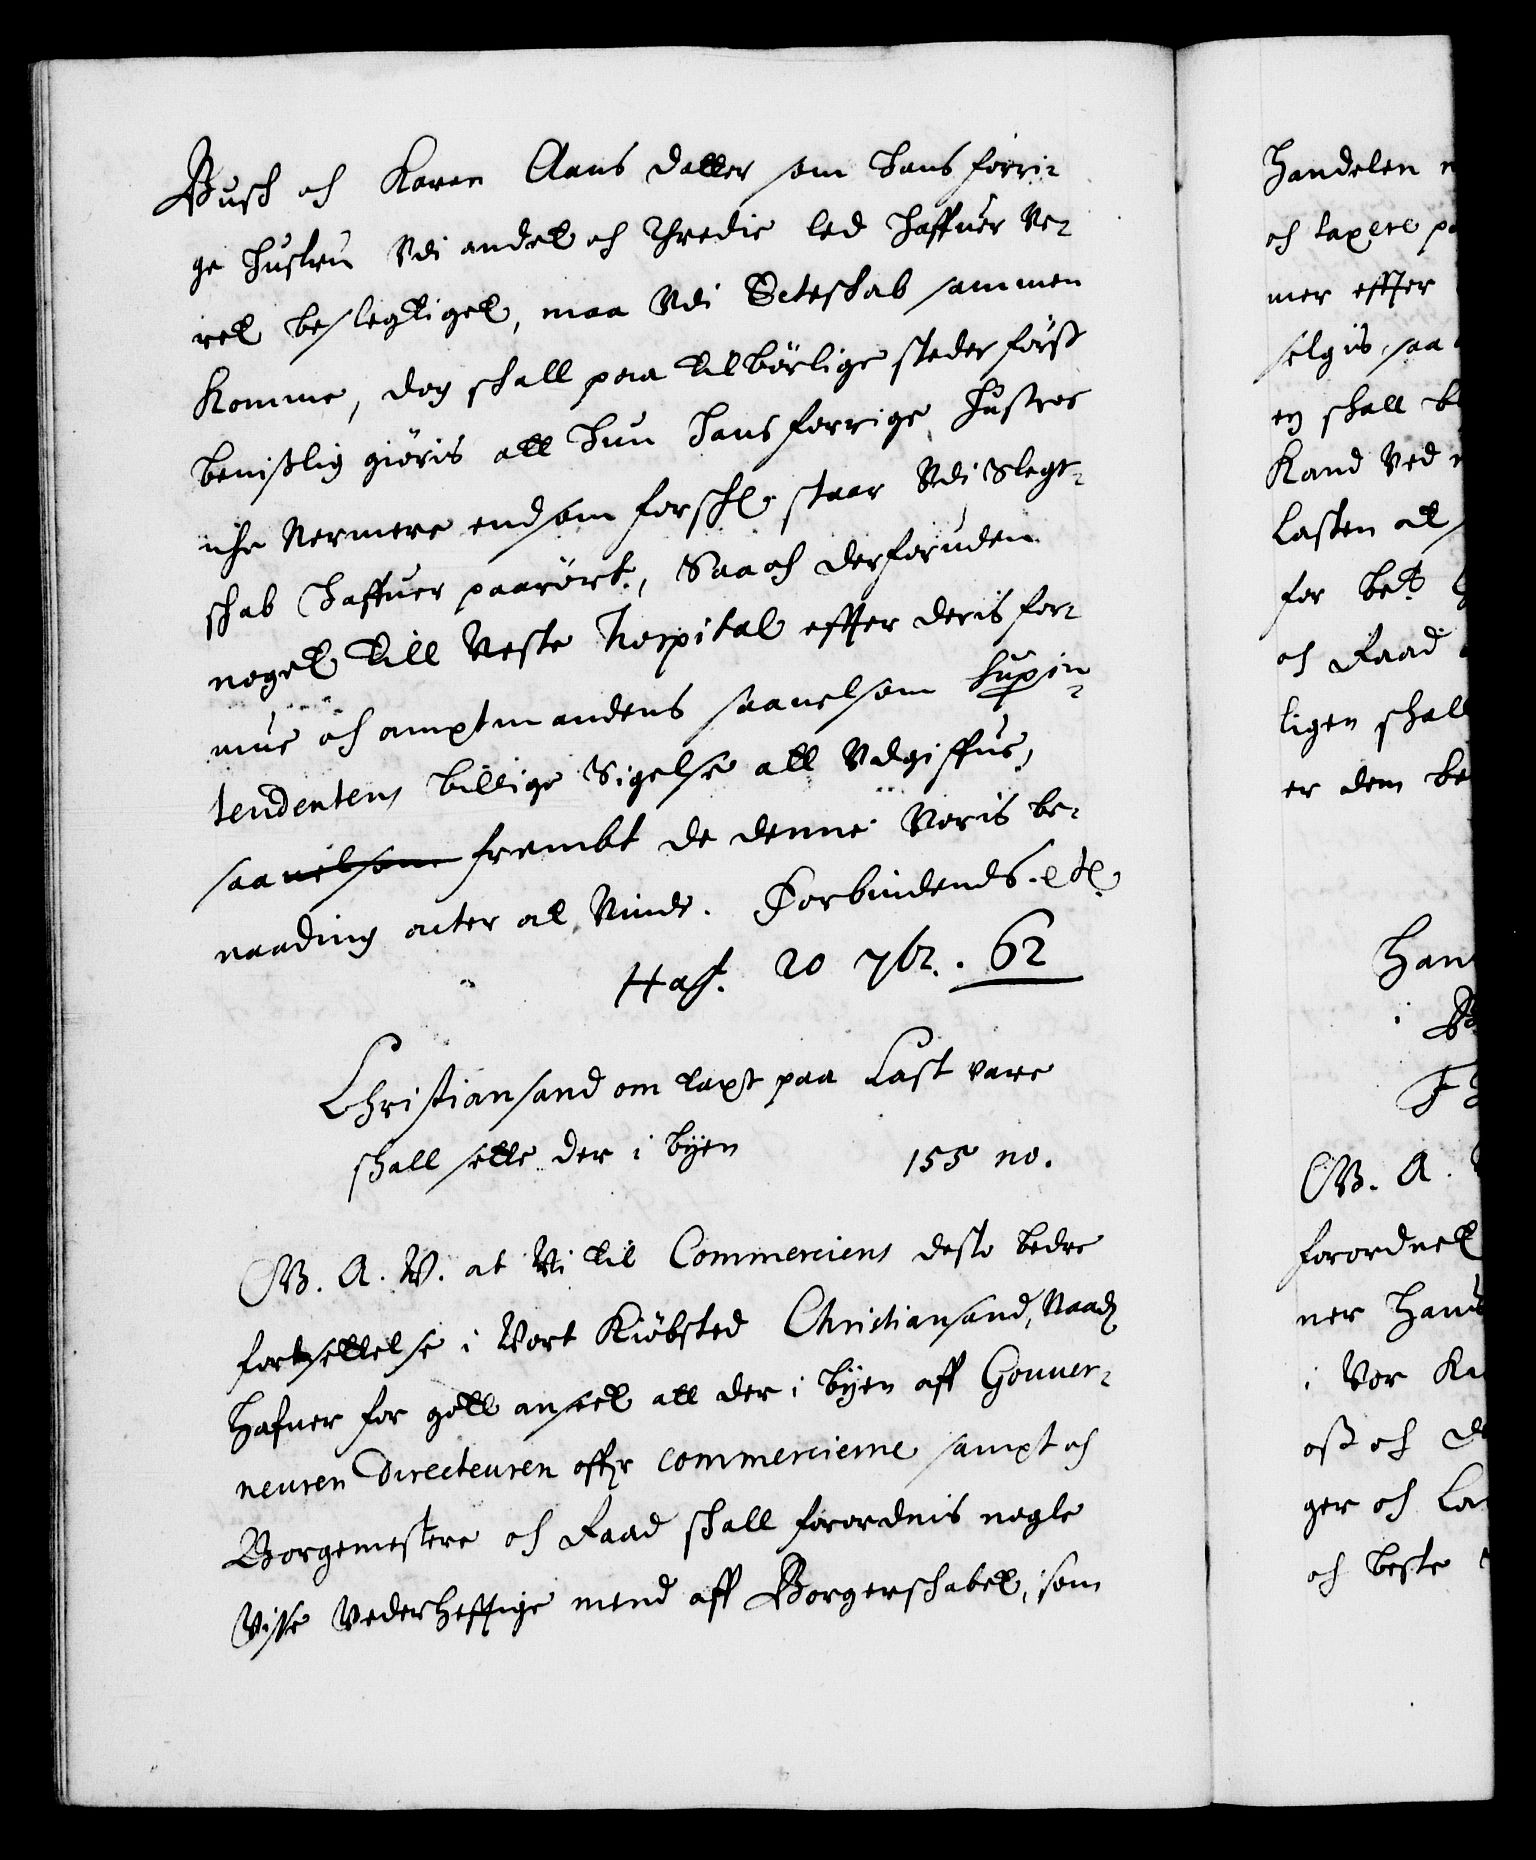 Busch och Karen Claus daatter som hans forri-
ge hustru Udi andet och thredie led haffuer Ve-
ret beslegtiget, maa Udi Ecteskab sammen
Komme, dog skall paa tilbörlige steder först
beuislig giöris att hun hans forrige hustroe
iche Nermere end som forschr. staar Udi Slegt-
skab haffuer paarört, Saa och der foruden
noget till Neste Hospital effter deris for-
mue och amptmandens saauelsom Supin-
tendentens billige Sigelse att Udgiffue,
saauelsom frembt de denne Voris be-
naading acter at Niude. Forbiudendes etc.
Haf. 20 7br. 62
Christiansand om taxt paa Last vare
skall sette der i byen 155 no.
G. A. V. at Vi til Commerciens desto bedre
fortsettelse i Vort Kiöbsted Christiansand, Naadt
hafuer for gott anseet att der i byen aff Gouuer-
neuren Directeuren offr commercierne sampt och
Borgemestere och Raad skall forordnis nogle
Visse Vederhefftige mend aff Borgerskabet, som
Handelen
och taxere
mer effter
selgis, saa
ey skall
Kand Ved
Lasten at
for bet
och Raad
ligen skall
er dem
G. A.
forordnet
ner hans
i Vor
oss och
ger och
och beste